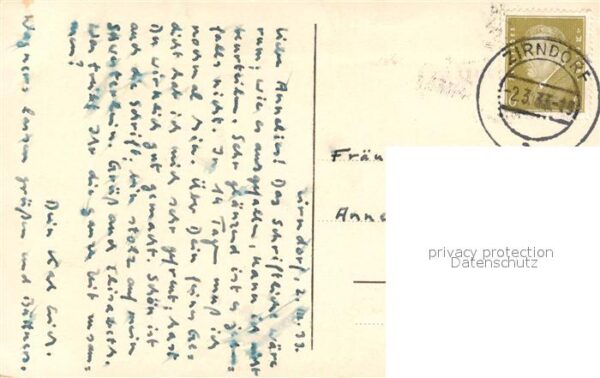 Zirndorf, 2. III. 33.
Liebe Annelies! Das Schriftliche wäre
rum, wie es ausgefallen, kann ich nicht
beurteilen. Sehr glänzend ist es jeden-
falls nicht. In 14 Tagen muß ich
nochmal hin. Über Dein feines Ge-
dicht hab ich mich sehr gefreut, hast
Du wirklich gut gemacht. Schön ist
auch die Schrift, bin stolz auf mein
Schwesterlein. Grüß auch Elisabeth.
Was treibt Ihr die ganze Zeit zusam-
men?
Dein Karl
Wagners lassen grüßen und
ZIRNDORF
-2.3.33.-19
Fräu
Anne
privacy protection
Datenschutz